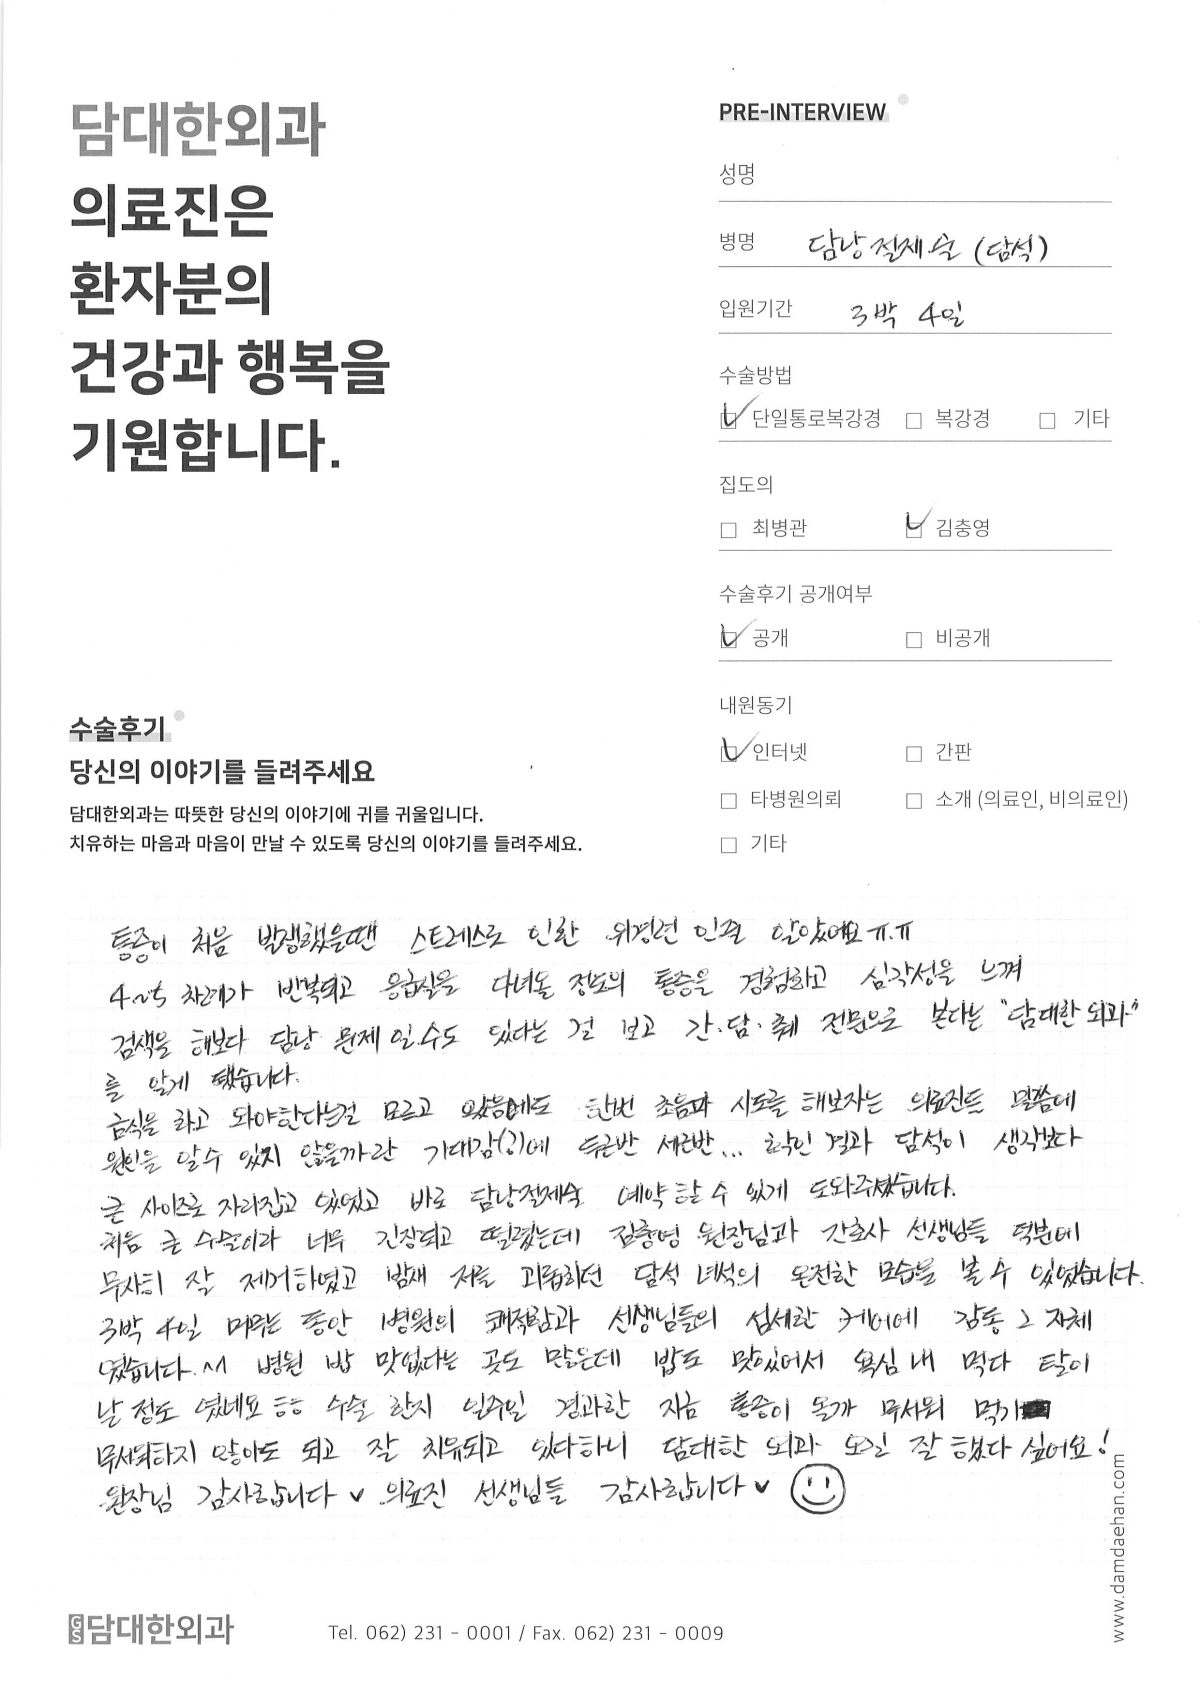 담대한외과
의료진은
환자분의
건강과 행복을
기원합니다.
PRE-INTERVIEW
성명
병명 담낭절제술 (담석)
입원기간 3박 4일
수술방법
단일통로복강경 복강경 기타
집도의
최병관 김충영
수술후기 공개여부
공개 비공개
내원동기
인터넷 간판
타병원의뢰 소개 (의료인, 비의료인)
기타
수술후기
당신의 이야기를 들려주세요
담대한외과는 따뜻한 당신의 이야기에 귀를 귀울입니다.
치유하는 마음과 마음이 만날 수 있도록 당신의 이야기를 들려주세요.
통증이 처음 발생했을땐 스트레스로 인한 위경련 인줄 알았어요 ㅠ.ㅠ
4~5 차례가 반복되고 응급실을 다녀올 정도의 통증을 경험하고 심각성을 느껴
검색을 해보다 담낭 문제 일수도 있다는 걸 보고 간·담·췌 전문으로 본다는 "담대한 외과"
를 알게 됐습니다.
금식을 하고 와야한다는걸 모르고 왔음에도 한번 초음파 시도를 해보자는 의료진들 말씀에
원인을 알수 있지 않을까란 기대감(?)에 두근반 세근반... 확인 결과 담석이 생각보다
큰 사이즈로 자리잡고 있었고 바로 담낭절제술 예약 할 수 있게 도와주셨습니다.
처음 큰 수술이라 너무 긴장되고 떨렸는데 김충영 원장님과 간호사 선생님들 덕분에
무사히 잘 제거하였고 밤새 저를 괴롭히던 담석 녀석의 온전한 모습을 볼 수 있었습니다.
3박 4일 머무는 동안 병원의 쾌적함과 선생님들의 섬세한 케어에 감동 그 자체
였습니다. ^^ 병원 밥 맛없다는 곳도 많은데 밥도 맛있어서 욕심 내 먹다 탈이
날 정도 였네요 ㅎㅎ 수술 한지 일주일 경과한 지금 통증이 올까 무서워 먹기
무서워하지 않아도 되고 잘 치유되고 있다하니 담대한 외과 오길 잘 했다 싶어요!
원장님 감사합니다 ♥ 의료진 선생님들 감사합니다 ♥
www.damdaehan.com
GS 담대한외과
Tel. 062) 231 - 0001 / Fax. 062) 231 - 0009